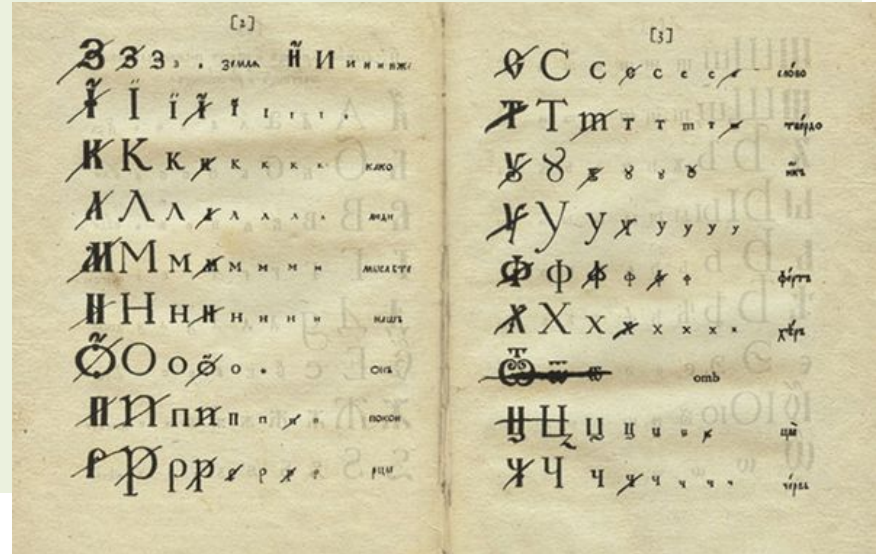 [2]
З З З з з земля Й И и и и иже
Ї Ї ї ї ї ї ї ї
К К К к к к к к како
Л Л Л л л л л л люди
М М М м м м м м мыслѣте
Н Н Н н н н н н нашъ
О О о о о о онъ
П П п п п п п п покои
Р Р р р р р р р рцы
[3]
С С С с с с с с слово
Т Т т т т т т т твердо
Ꙋ Ꙋ ꙋ ꙋ ꙋ ꙋ
У У У у у у у у
Ф Ф Ф ф ф ф фертъ
Х Х Х х х х х х хѣръ
Ѿ Ѿ Ѿ отъ
Ц Ц Ц ц ц ц ц цы
Ч Ч Ч ч ч ч ч ч червь